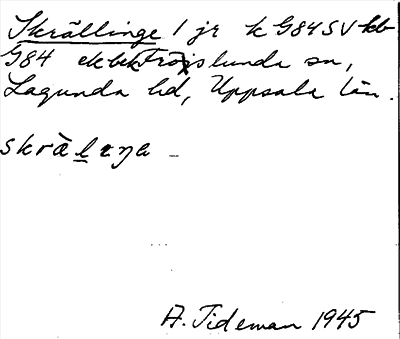 Skrällinge 1 jr k G84SV kb
G84 ekbl Fröslunda sn,
Lagunda hd, Uppsala län.
skrälıŋe
A. Tideman 1945